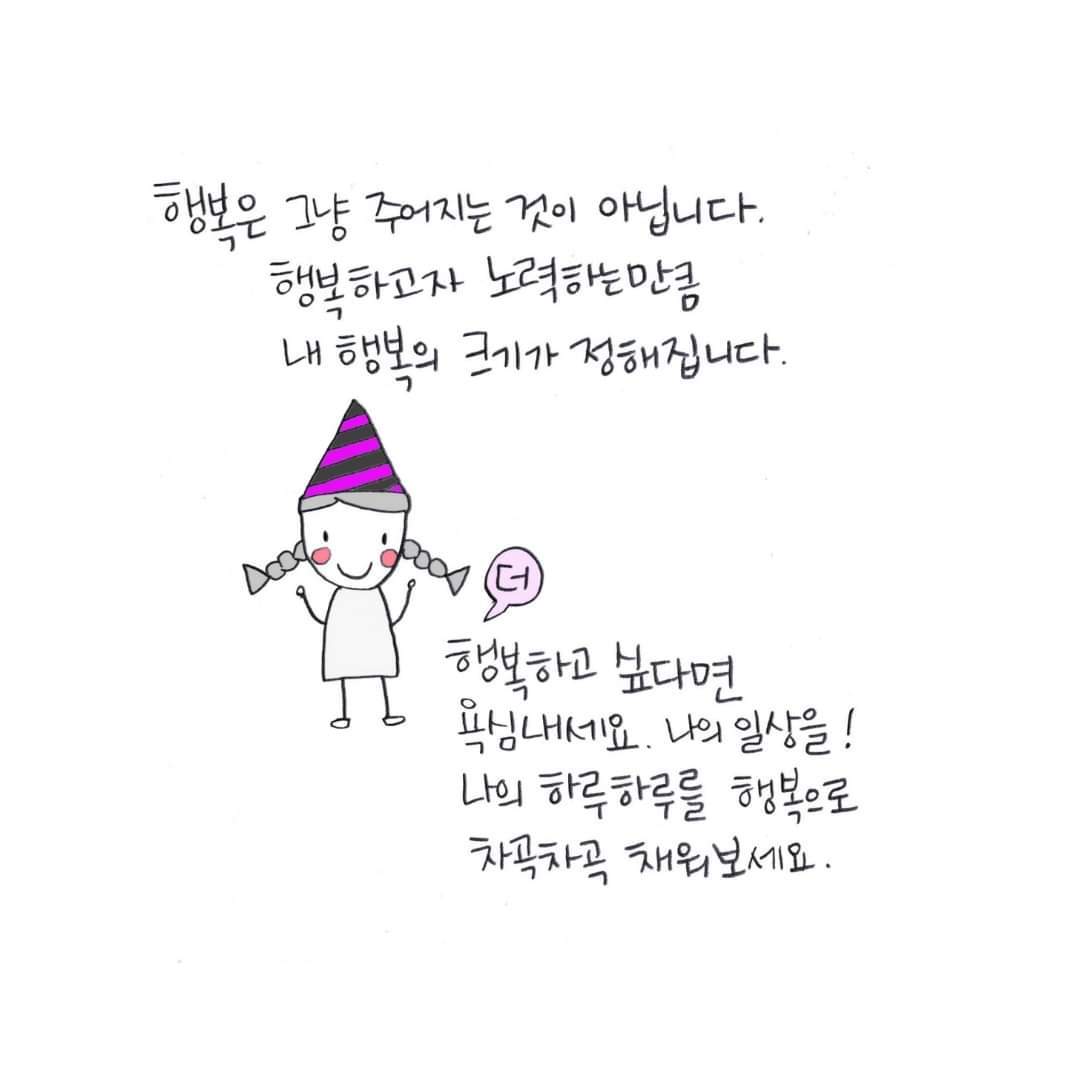 행복은 그냥 주어지는 것이 아닙니다.
행복하고자 노력하는만큼
내 행복의 크기가 정해집니다.
더
행복하고 싶다면
욕심내세요. 나의 일상을!
나의 하루하루를 행복으로
차곡차곡 채워보세요.